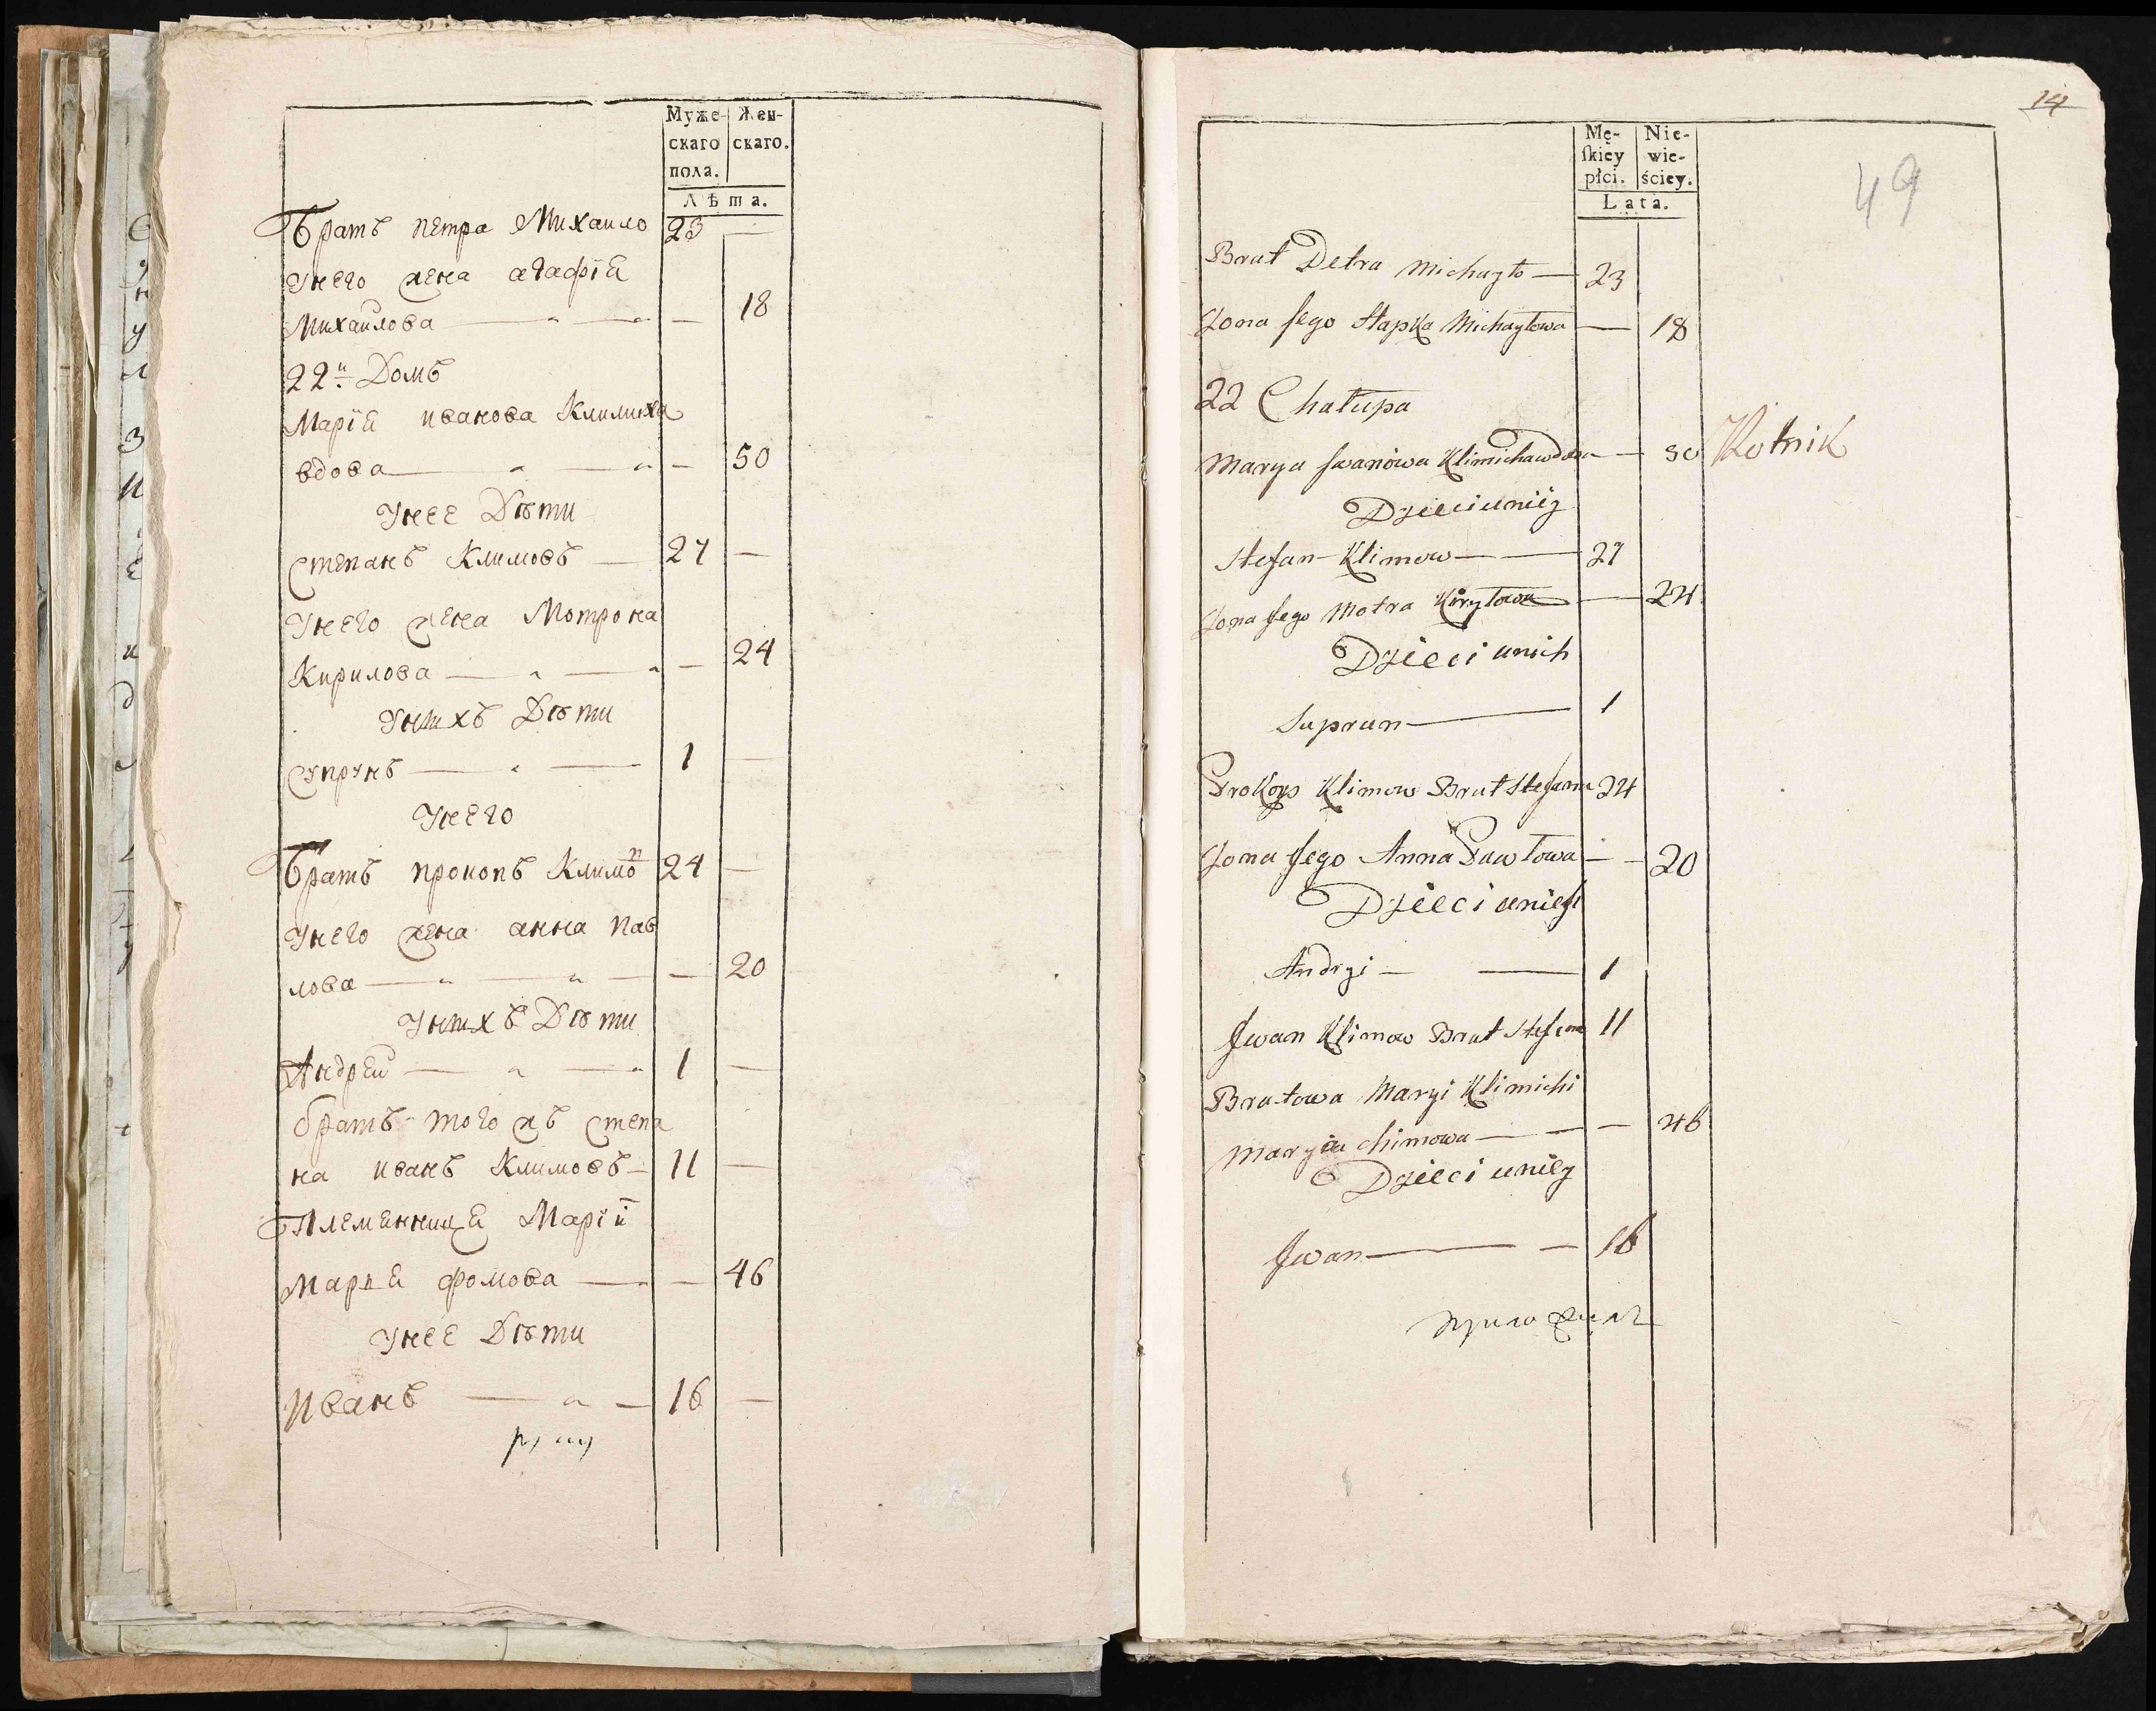 Муже- Жен-
скаго скаго.
пола.
Лѣта.
Братъ петра Михаило 23 —
Унего жена агафіа
Михаилова — — — 18
22й Домъ
Маріа иванова Климиха
вдова — — — 50
Унее Дѣти
Степанъ Климовъ — 27 —
Унего жена Мотрона
Кирилова — — — 24
Унихъ Дѣти
Супрунъ — — 1 —
Унего
Братъ прокопъ Климов 24 —
Унего жена анна пав
лова — — — 20
Унихъ Дѣти
Андреи — — 1 —
братъ того жъ степа
на иванъ Климовъ — 11 —
Племенница Маріи
Маріа фомова — — 46
Унее Дѣти
Иванъ — — 16 —
14
49
Mę- Nie-
ſkiey wie-
płci. ściey.
Lata.
Brat Petra Michayło — 23
Żona Jego Hapka Michayłowa — 18
22 Chałupa
Marya Jwanowa Klimicha wdowa — 50 Kutnik
Dzieci u niey
Stefan Klimow — 27
Żona Jego Motra Kiryłowa — 24
Dzieci u nich
Suprun — 1
Prokop Klimow Brat Stefana 24
Żona Jego Anna Pawłowa — 20
Dzieci u nich
Andryi — 1
Jwan Klimow Brat Stefana 11
Bratowa Maryi Klimichi
Marya Chimowa — — 46
Dzieci u niey
Jwan — 16
приложилъ